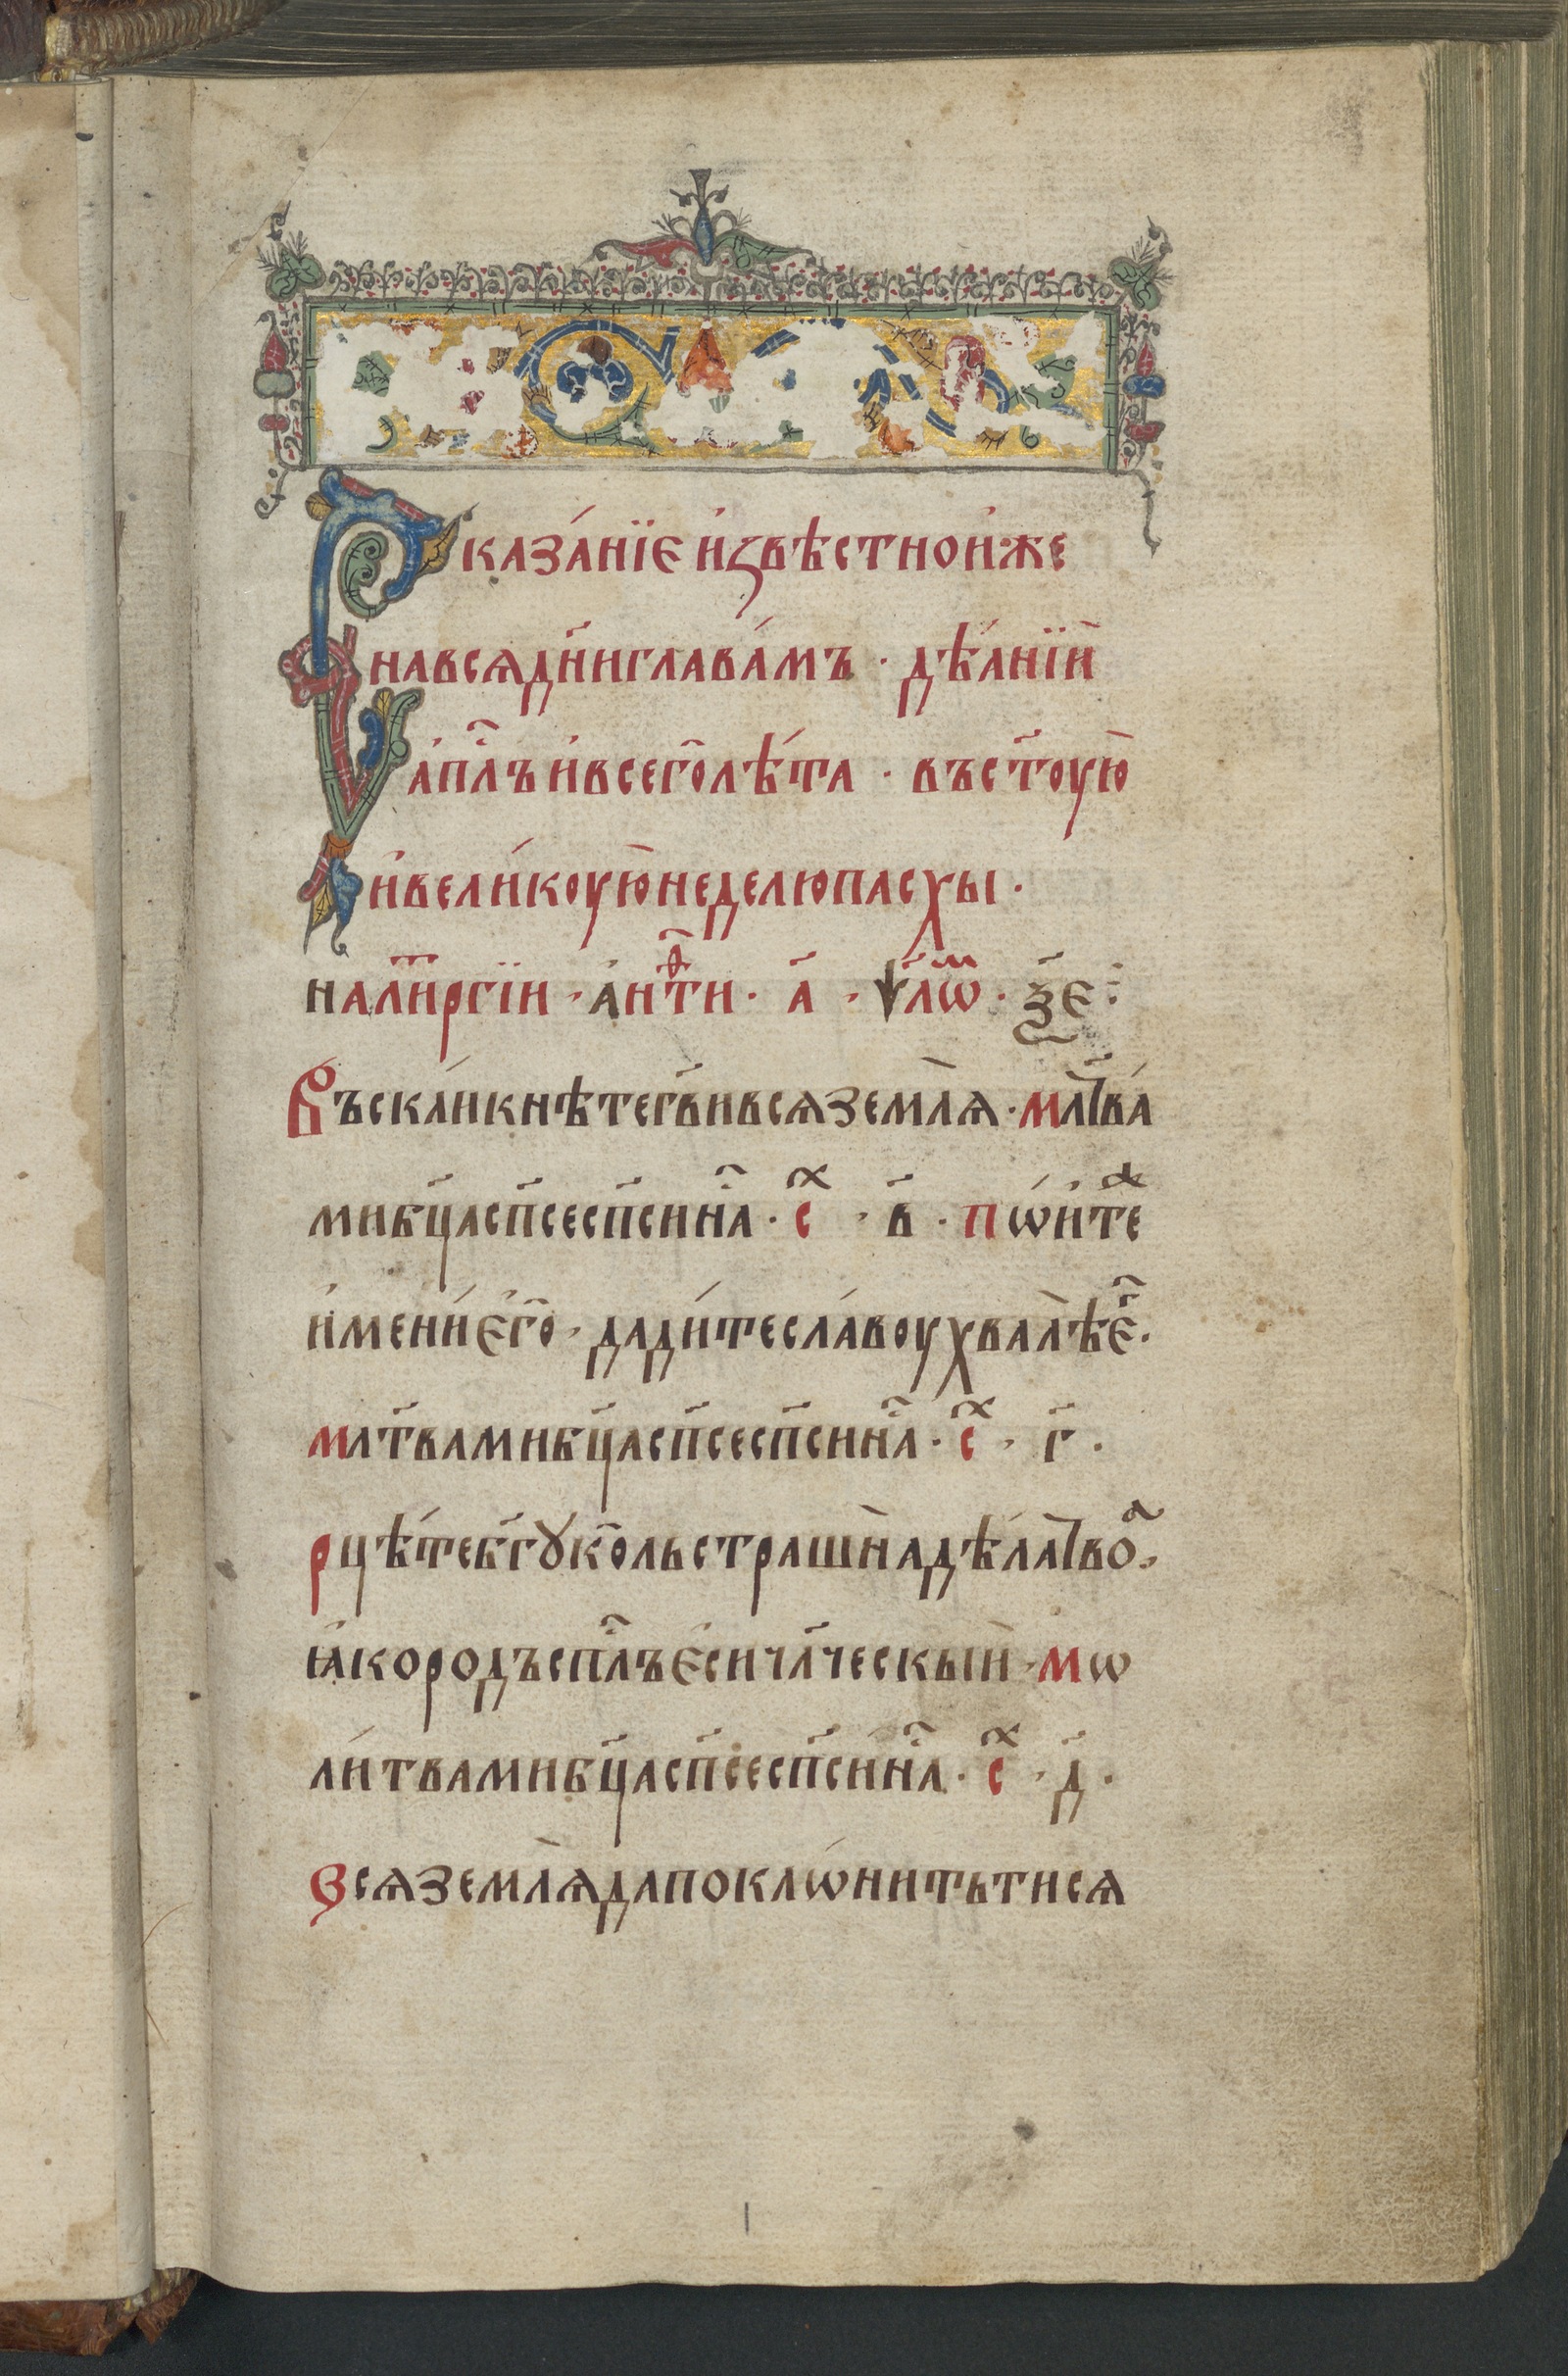 Сказа́нїе и҆звѣстно и҆же
на всѧ дн҃и глава́мъ · дѣа́нїи
а҆пⷭ҇лъ и҆ всего̀ лѣ́та · въ ст҃оую
и҆ вели́коую неделю пасхы ·
на лит҃ргїи · а҆нтⷤи · а҃ · ѱл҃ѡⷨ · ѯ҃е :
Въскли́кнѣте гв҃и всѧ землѧ̀ · мл҃тва́
ми бц҃а сп҃се сп҃си нⷭ҇а · сⷯ · в҃ · пѡ́и҆тⷤе
и҆мени́ е҆го̀ · дади́те сла́воу хвалѣ̀ е҆ⷢ ·
мл҃твами бц҃а сп҃се сп҃си нⷭ҇а · сⷯ · г҃ ·
рцѣ́те бг҃ꙋ коль страшна̀ дѣ́ла твоⷶ ·
ꙗ҆ко родъ спⷭ҇лъ е҆си чл҃ческыи · мѡ
ли́твами бц҃а сп҃се сп҃си нⷭ҇а · сⷯ · д҃ ·
Всѧ землѧ̀ да поклѡ́нитьтисѧ